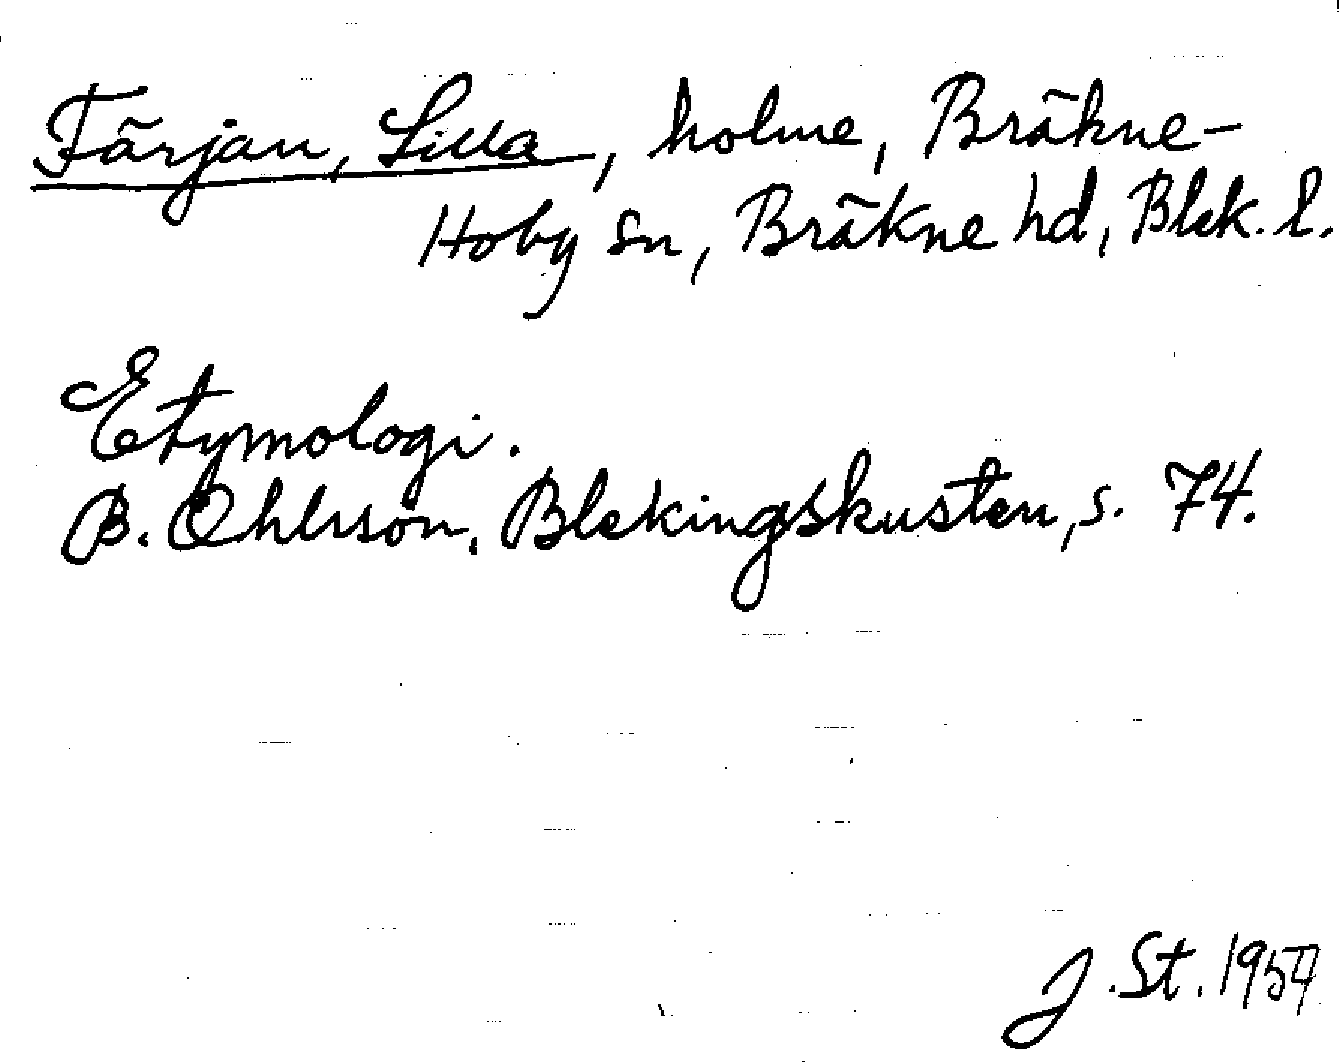 Färjan, Lilla, holme, Bräkne-
Hoby sn, Bräkne hd, Blek. l.
Etymologi.
B. Ohlsson, Blekingskusten, s. 74.
J. St. 1954